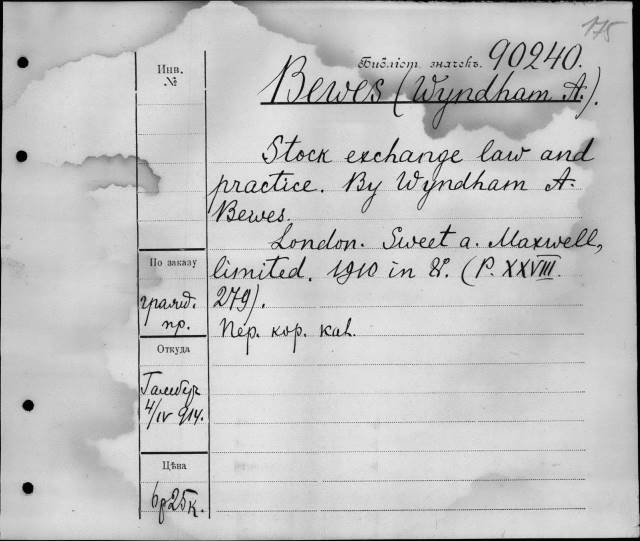 175
Инв.
№
Библіот. значекъ. 90240.
Bewes (Wyndham A.).
Stock exchange law and
practice. By Wyndham A.
Bewes.
London. Sweet a. Maxwell,
limited. 1910 in 8. (P. XXVIII.
279).
Пер. кор. кал.
По заказу
гражд.
пр.
Откуда
Гамбур
4/IV 914.
Цѣна
6р25к.